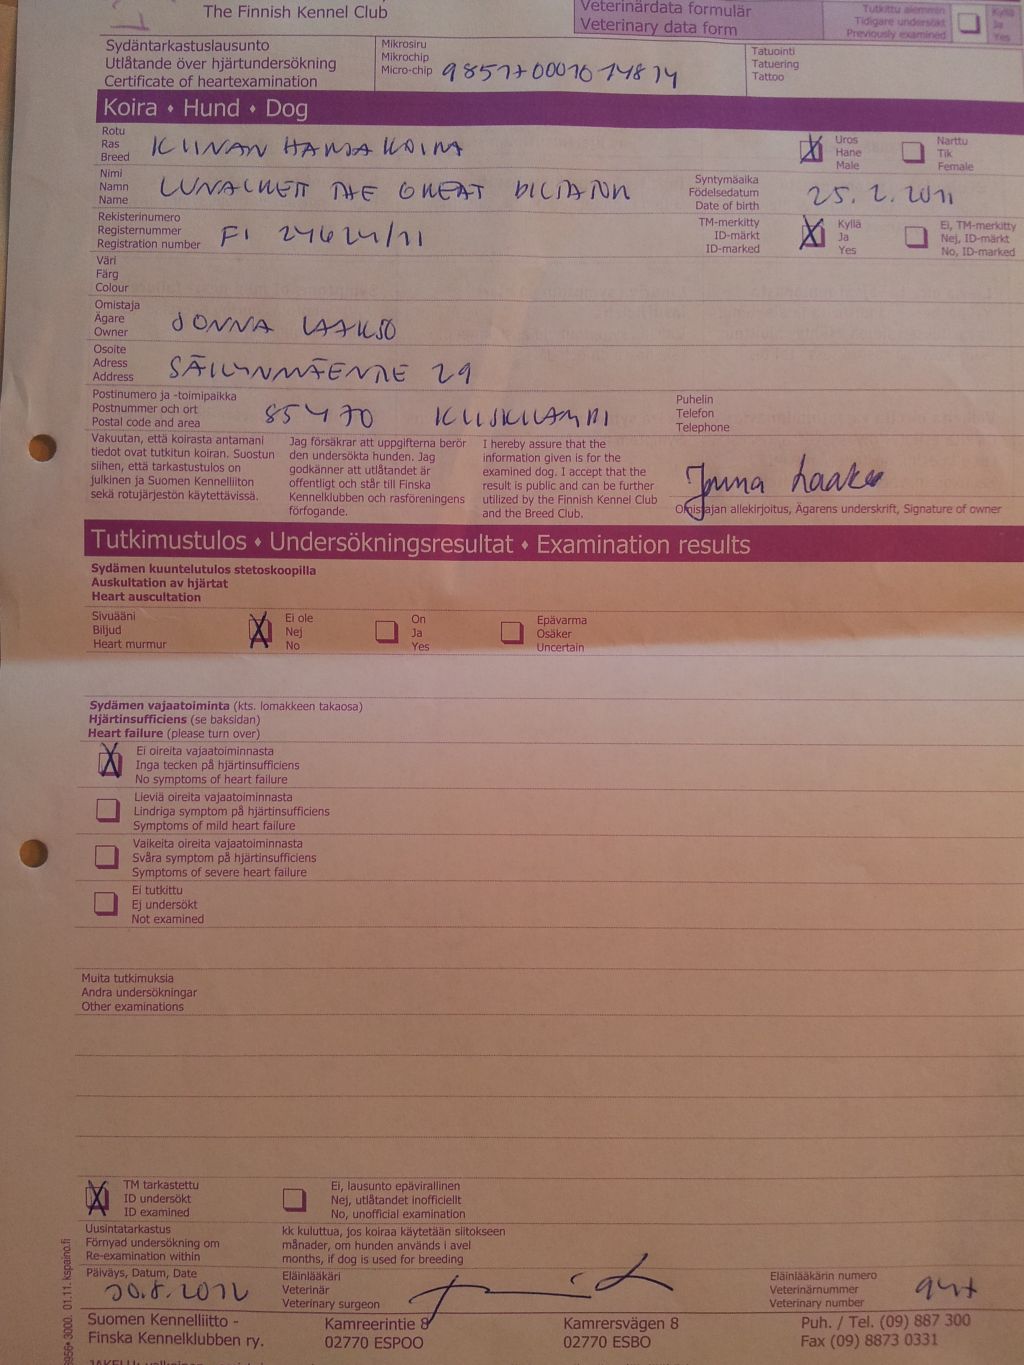 The Finnish Kennel Club
Veterinärdata formulär
Veterinary data form
Tutkittu aiemmin
Tidigare undersökt
Previously examined
Kyllä
Ja
Yes
Sydäntarkastuslausunto
Utlåtande över hjärtundersökning
Certificate of heartexamination
Mikrosiru
Mikrochip
Micro-chip
Tatuointi
Tatuering
Tattoo
Koira • Hund • Dog
Rotu
Ras
Breed
KIINAN HARJAKOIRA
Uros
Hane
Male
Narttu
Tik
Female
Nimi
Namn
Name
THE GREAT DICTATOR
Syntymäaika
Födelsedatum
Date of birth
25. 2. 2011
Rekisterinumero
Registernummer
Registration number
FI 24624/11
TM-merkitty
ID-märkt
ID-marked
Kyllä
Ja
Yes
Ei, TM-merkitty
Nej, ID-märkt
No, ID-marked
Väri
Färg
Colour
Omistaja
Ägare
Owner
JONNA LAAKSO
Osoite
Adress
Address
29
Postinumero ja -toimipaikka
Postnummer och ort
Postal code and area
85470
Puhelin
Telefon
Telephone
Vakuutan, että koirasta antamani
tiedot ovat tutkitun koiran. Suostun
siihen, että tarkastustulos on
julkinen ja Suomen Kennelliiton
sekä rotujärjestön käytettävissä.
Jag försäkrar att uppgifterna berör
den undersökta hunden. Jag
godkänner att utlåtandet är
offentligt och står till Finska
Kennelklubben och rasföreningens
förfogande.
I hereby assure that the
information given is for the
examined dog. I accept that the
result is public and can be further
utilized by the Finnish Kennel Club
and the Breed Club.
Jonna Laakso
Omistajan allekirjoitus, Ägarens underskrift, Signature of owner
Tutkimustulos • Undersökningsresultat • Examination results
Sydämen kuuntelutulos stetoskoopilla
Auskultation av hjärtat
Heart auscultation
Sivuääni
Biljud
Heart murmur
Ei ole
Nej
No
On
Ja
Yes
Epävarma
Osäker
Uncertain
Sydämen vajaatoiminta (kts. lomakkeen takaosa)
Hjärtinsufficiens (se baksidan)
Heart failure (please turn over)
Ei oireita vajaatoiminnasta
Inga tecken på hjärtinsufficiens
No symptoms of heart failure
Lieviä oireita vajaatoiminnasta
Lindriga symptom på hjärtinsufficiens
Symptoms of mild heart failure
Vaikeita oireita vajaatoiminnasta
Svåra symptom på hjärtinsufficiens
Symptoms of severe heart failure
Ei tutkittu
Ej undersökt
Not examined
Muita tutkimuksia
Andra undersökningar
Other examinations
TM tarkastettu
ID undersökt
ID examined
Ei, lausunto epävirallinen
Nej, utlåtandet inofficiellt
No, unofficial examination
Uusintatarkastus
Förnyad undersökning om
Re-examination within
kk kuluttua, jos koiraa käytetään siitokseen
månader, om hunden används i avel
months, if dog is used for breeding
Päiväys, Datum, Date
30.8.2012
Eläinlääkäri
Veterinär
Veterinary surgeon
Eläinlääkärin numero
Veterinärnummer
Veterinary number
Suomen Kennelliitto -
Finska Kennelklubben ry.
Kamreerintie 8
02770 ESPOO
Kamrersvägen 8
02770 ESBO
Puh. / Tel. (09) 887 300
Fax (09) 8873 0331
3000. 01.11. kspaino.fi